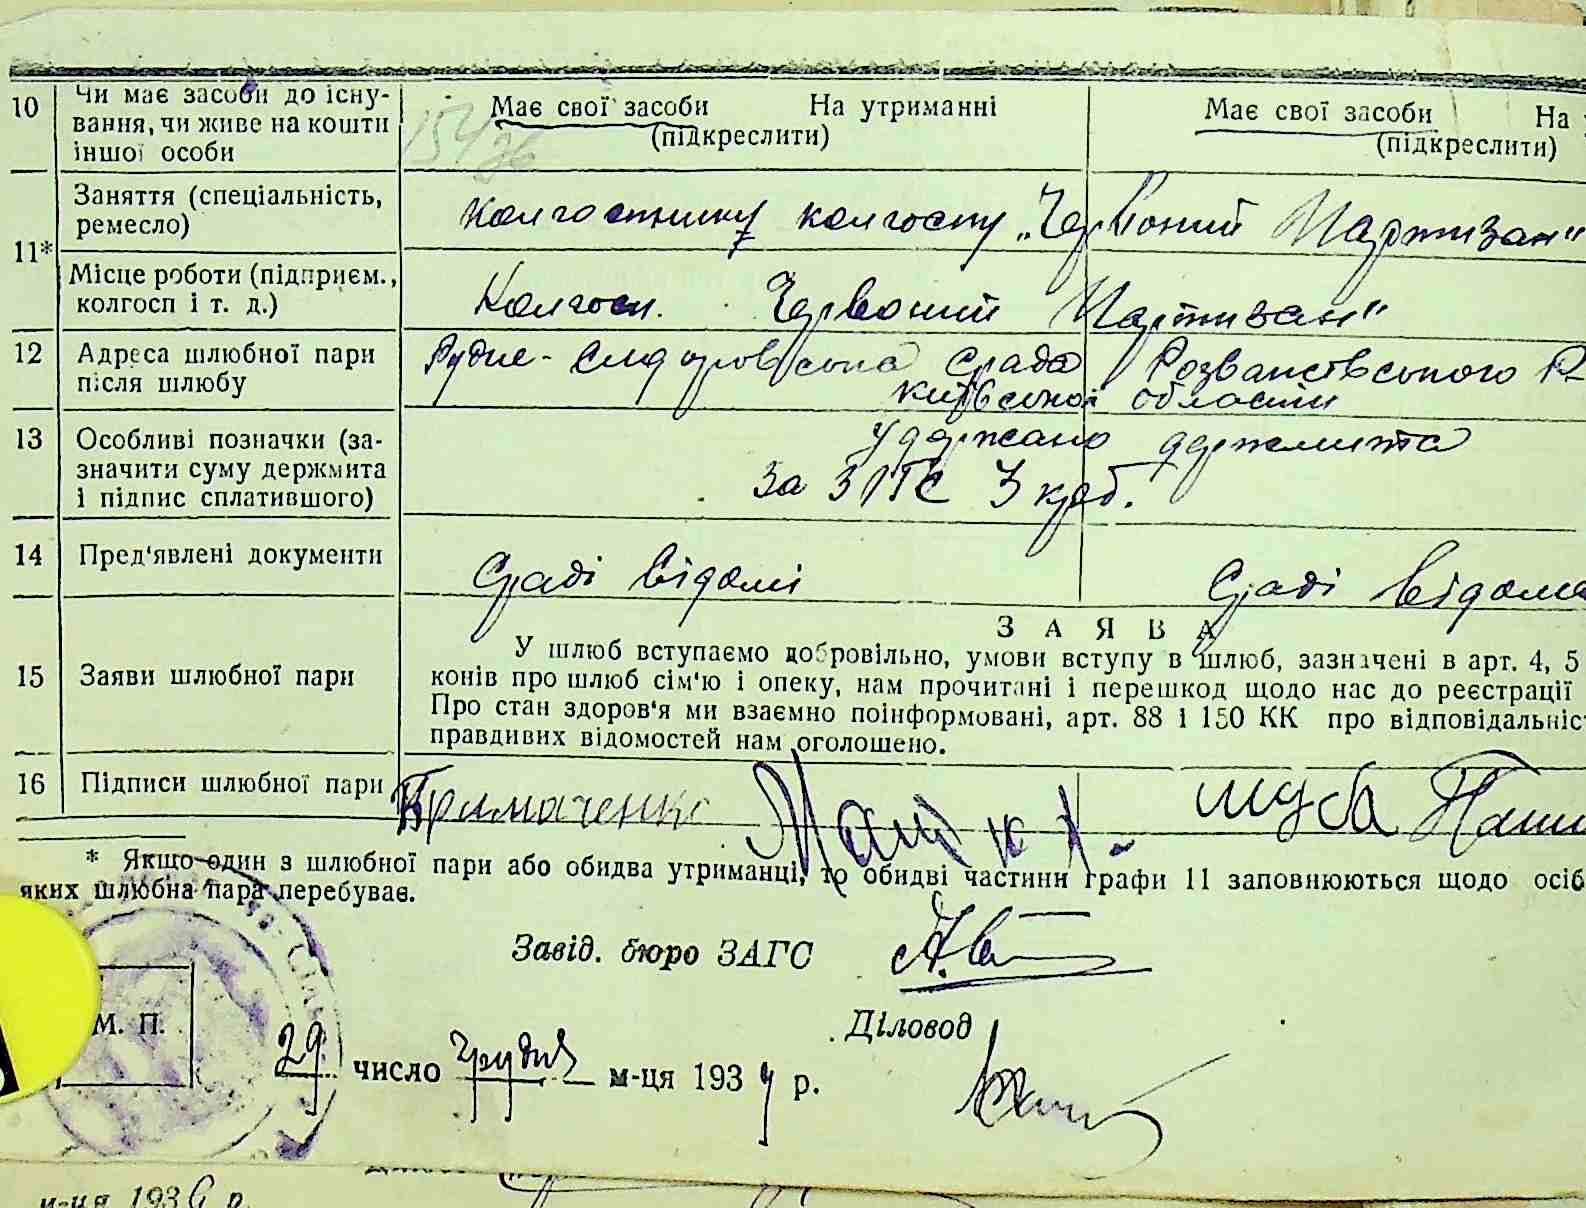 10 Чи має засоби до існу-
вання, чи живе на кошти
іншої особи
Має свої засоби На утриманні
(підкреслити)
Має свої засоби На
(підкреслити)
11*
Заняття (спеціальність,
ремесло)
колгоспнику колгоспу „Червоний Партизан"
Місце роботи (підприєм.,
колгосп і т. д.)
Колгосп. Червоний Партизан"
12 Адреса шлюбної пари
після шлюбу
Рудне- срада Розважевського Р
київської області
13 Особливі позначки (за-
значити суму держмита
і підпис сплатившого)
Удержано держмита
за ЗАГС 3 крб.
14 Пред'явлені документи
Сраді відомі
Сраді відома
З А Я В А
15 Заяви шлюбної пари
У шлюб вступаємо добровільно, умови вступу в шлюб, зазначені в арт. 4, 5
конів про шлюб сім'ю і опеку, нам прочитані і перешкод щодо нас до реєстрації
Про стан здоров'я ми взаємно поінформовані, арт. 88 і 150 КК про відповідальніс
правдивих відомостей нам оголошено.
16 Підписи шлюбної пари
Примаченко
Шуба
* Якщо один з шлюбної пари або обидва утриманці, то обидві частини графи 11 заповнюються щодо осіб
яких шлюбна пара перебуває.
Завід. бюро ЗАГС
М. П.
Діловод
29 число грудня м-ця 193 р.
м-ця 1936 р.